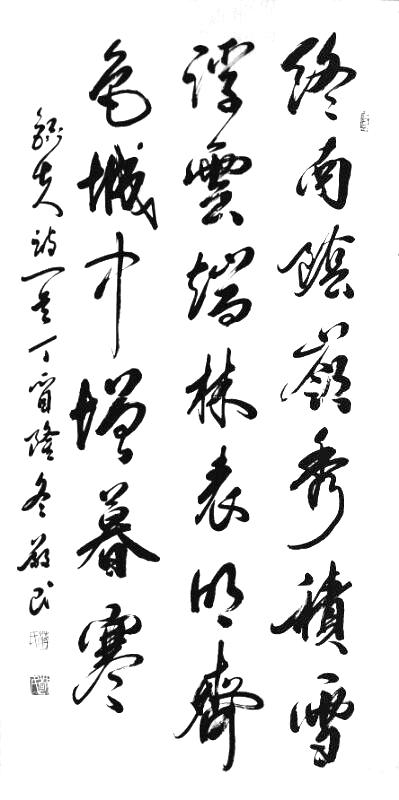 終南陰嶺秀積雪
浮雲端林表明霽
色城中增暮寒
錄古人詩一首丁酉隆冬